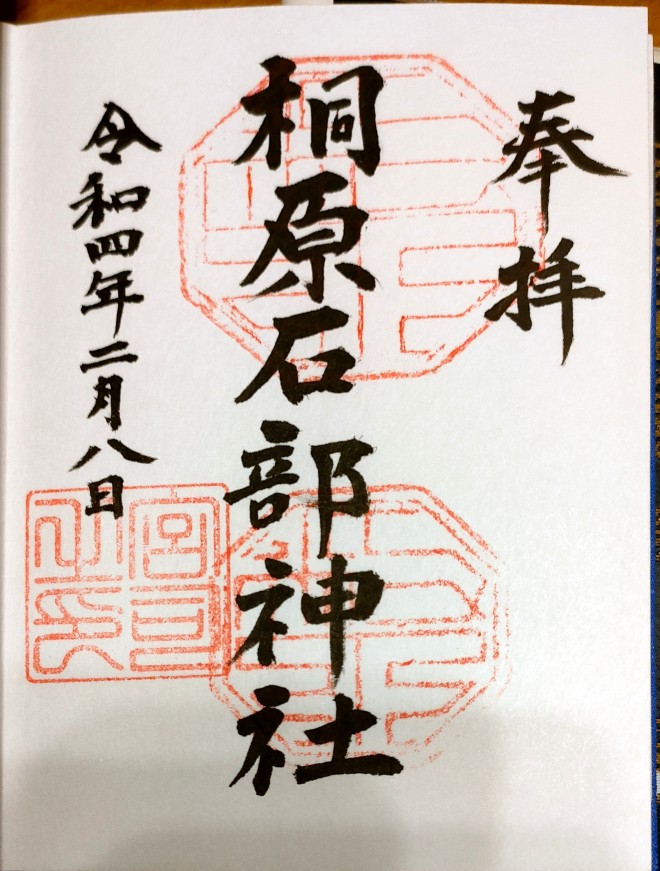 奉拝
桐原石部神社
令和四年二月八日